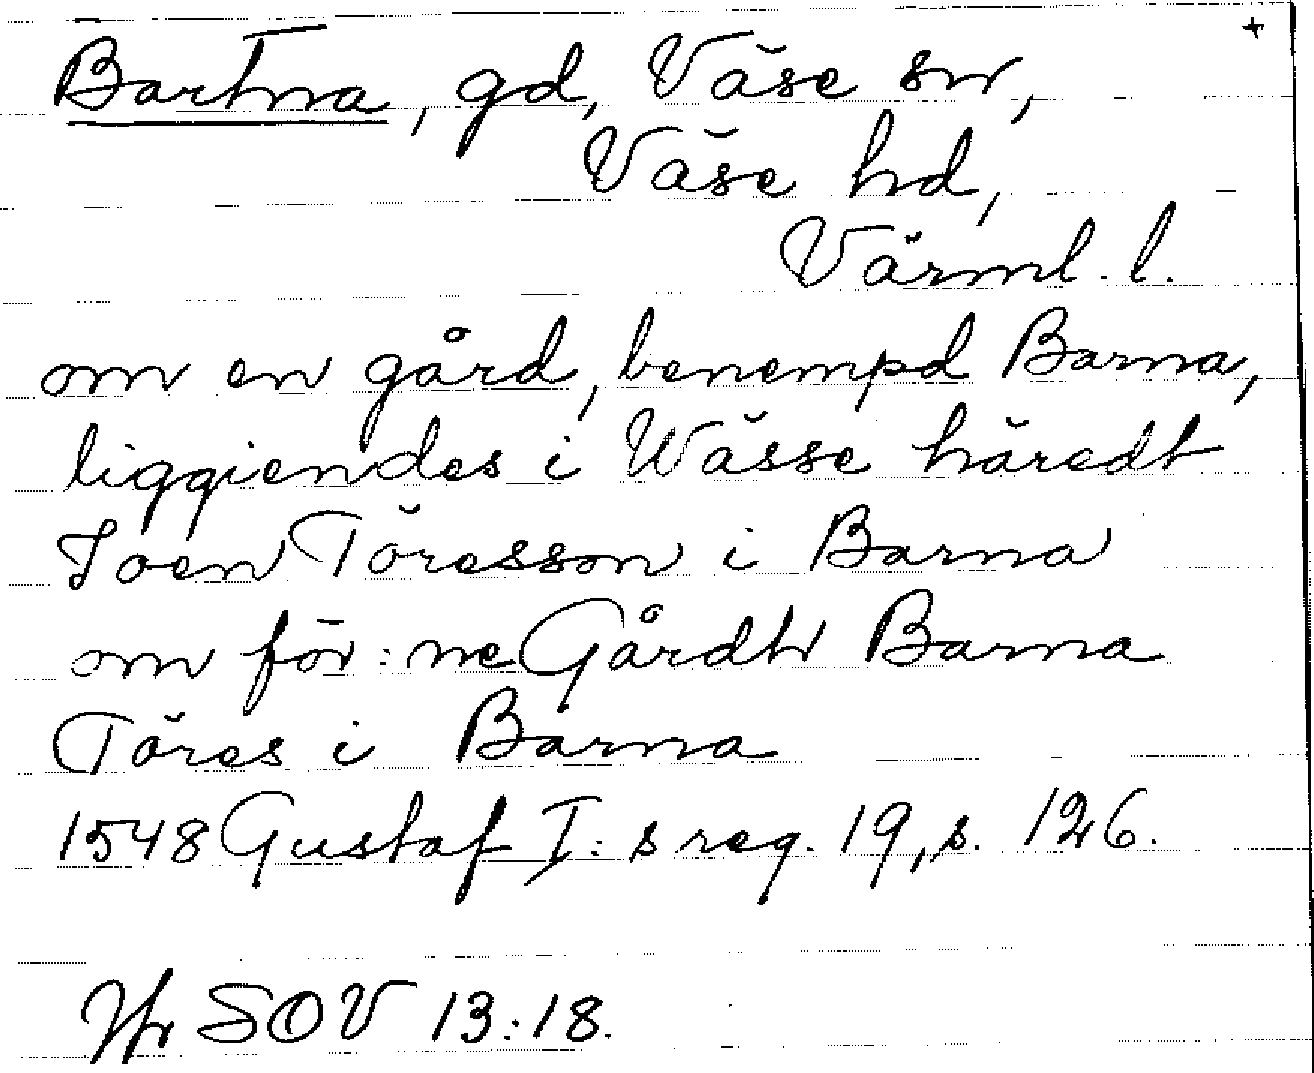 +
Bartna, gd, Väse sn,
Väse hd,
Värml. l.
om en gård, benempd Barna,
liggiendes i Wässe häredt
Joen Töresson i Barna
om för:ne Gårdh Barna
Töres i Barna
1548 Gustaf I:s reg. 19, s. 126.
Jfr SOV 13:18.